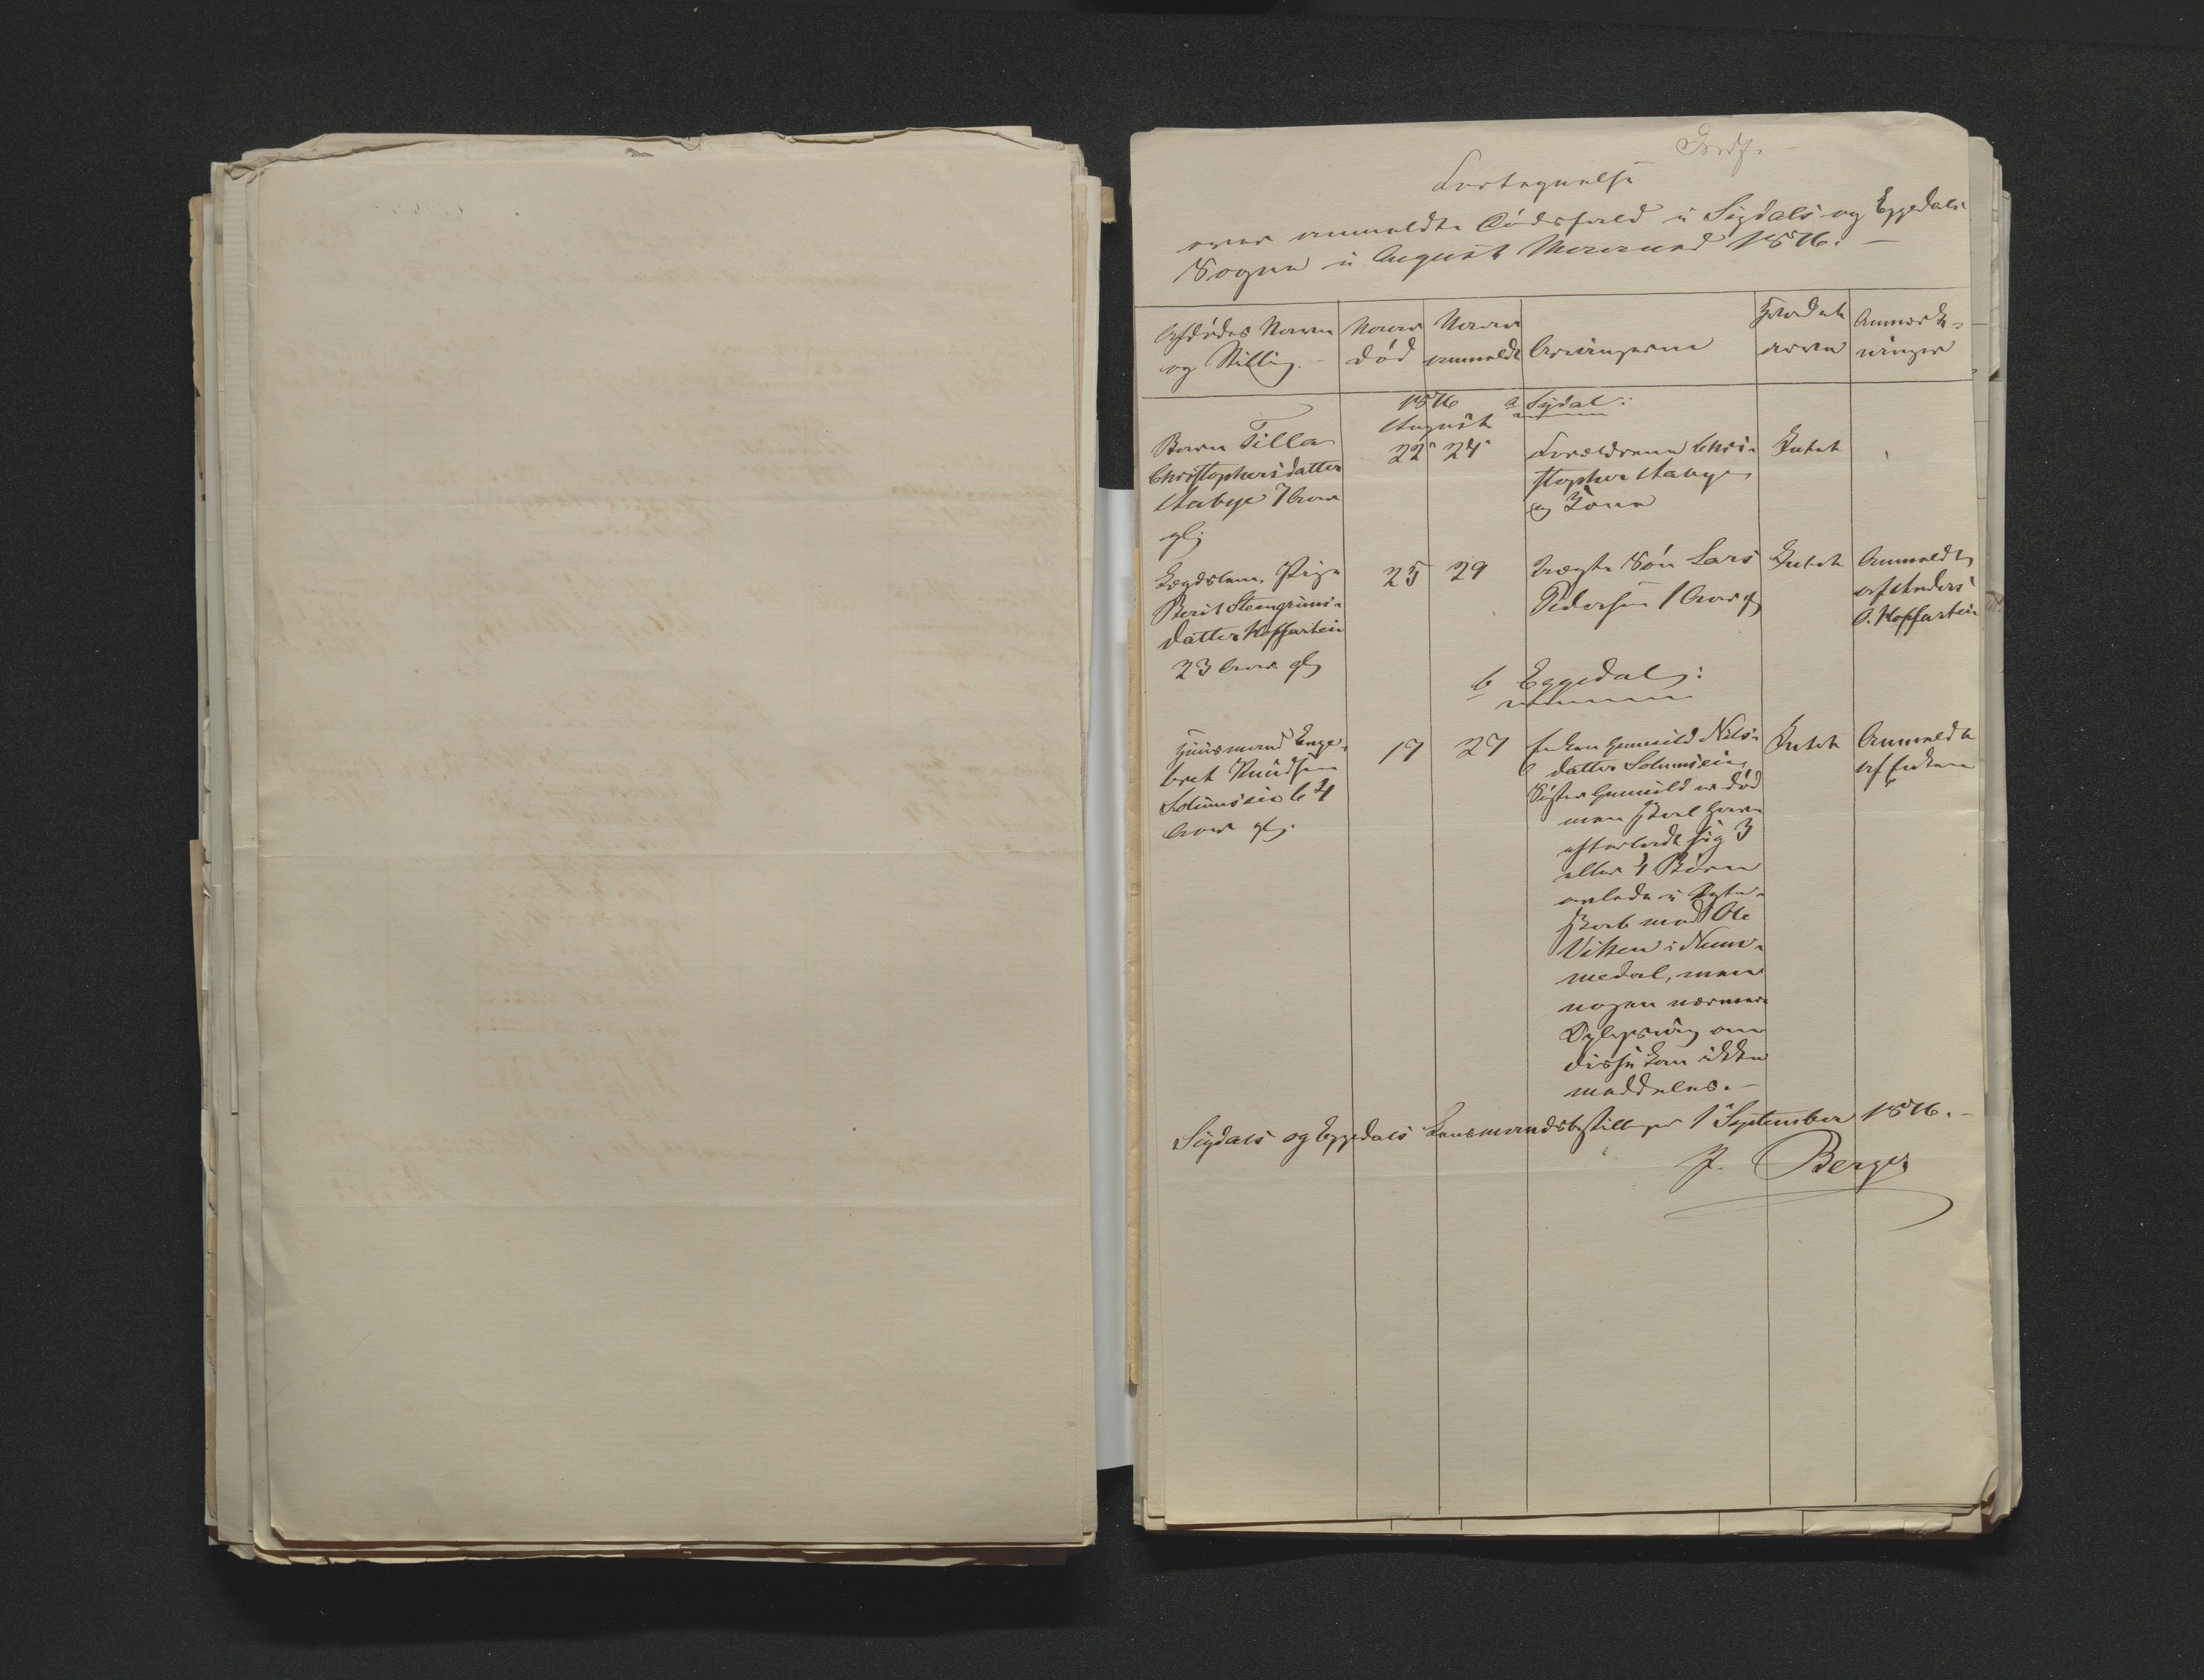 Fortegnelse
over anmeldte Dødsfald i Sigdals og Eggedals
Sogne i August Maaned 1876. —
Afdødes Navn
og Stilling. -
Naar
død
Naar
anmeldt
Arvingerne
Anmærk-
ninger
1876 a Sigdal:
August
Barn Tilla
Christophersdatter
Aabye 7 Aar
gl;
22 24
Forældrene Chri-
stopher Aabye
og Kone
Intet
Pige
Berit Steengrims-
datter Hoffartein
23 Aar gl;
25 29
uægte Søn Lars
Pedersen 1 Aar gl
Intet
Anmeldt
af Anders
O. Hoffartein
b Eggedal:
Huusmand Enge-
bret Knudsen
64
Aar gl;
17 27
Enken Gunild Nils-
datter
Søster Gunild er død
men skal have
efterladt sig 3
eller 4 Børn
avlede i Ægte-
skab med Ole
Vikken i Num-
medal, men
nogen nærmere
Oplysning om
disse kan ikke
meddeles. —
Intet
Anmeldt
af Enken
Sigdals og Eggedals Lensmandsbestillinger 1 September 1876. —
P. Berger